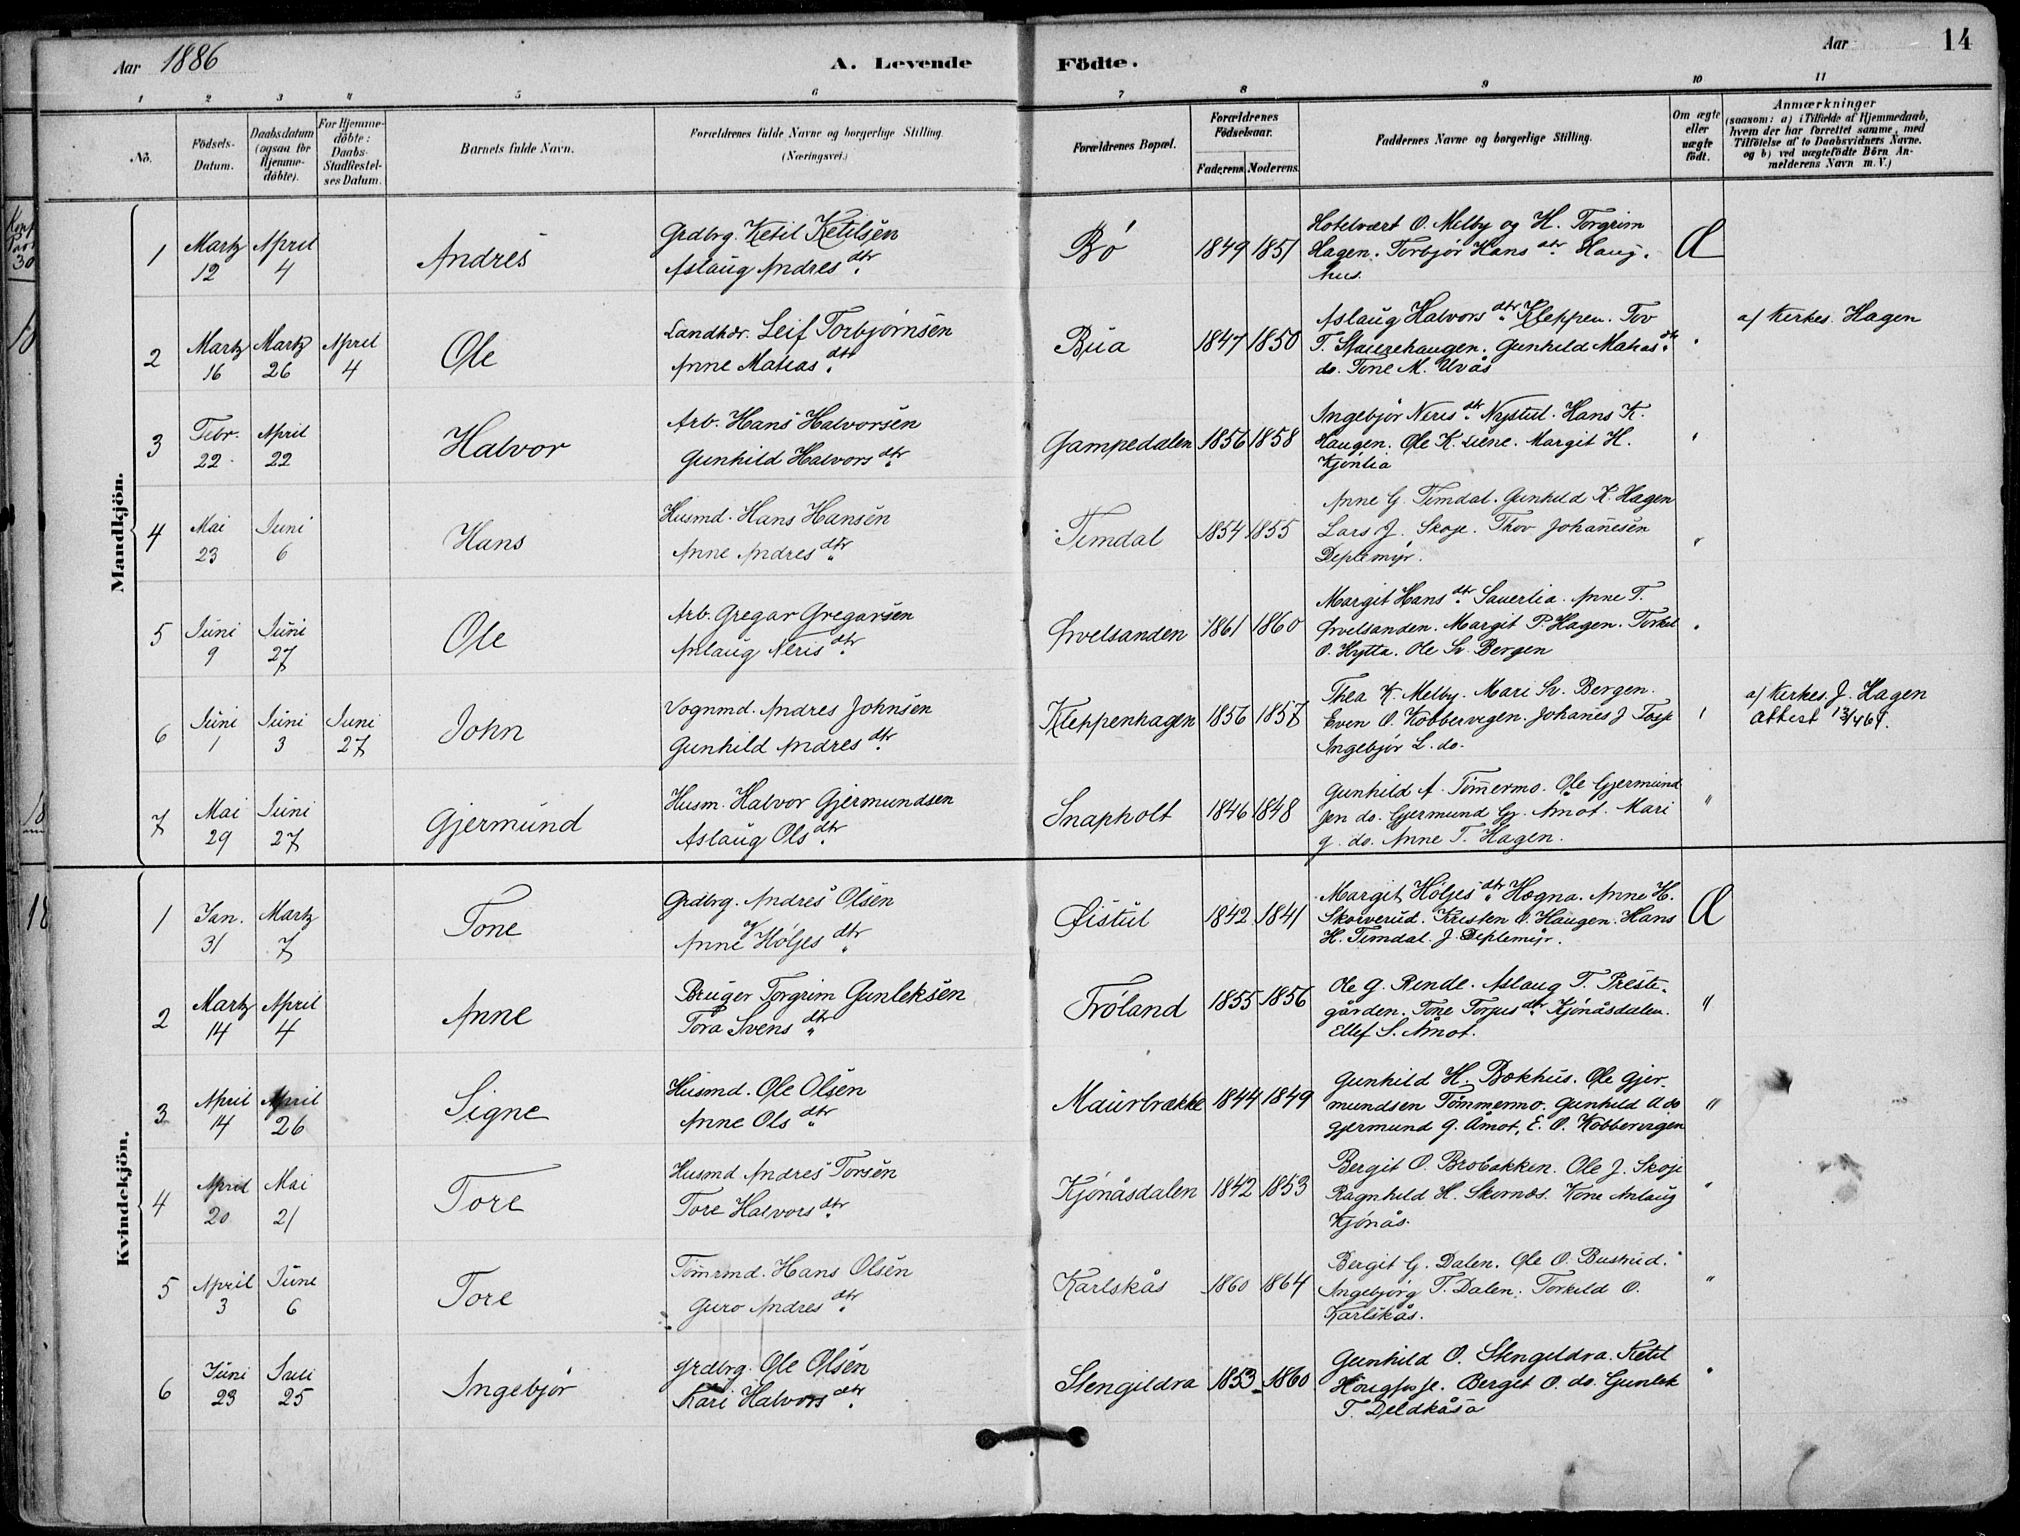 Aar 1886
A. Levende Födte.
Aar
14
1 2 3 4 5 6 7 8 9 10 11
No.
Födsels-Datum.
Daabsdatum (ogsaa för Hjemme-döbte).
For Hjemme-döbte: Daabs-Stadfæstel-ses Datum.
Barnets fulde Navn.
Forældrenes fulde Navne og borgerlige Stilling. (Næringsvei.)
Forældrenes Bopæl.
Forældrenes Födselsaar.
Faderens Moderens
Faddernes Navne og borgerlige Stilling.
Om ægte eller uægte födt.
Anmærkninger
(saasom: a) i Tilfælde af Hjemmedaab, hvem der har forrettet samme, med Tilföielse af to Daabsvidners Navne. og b) ved uægtefödte Börn Anmelderens Navn m.V.)
Mandkjön.
1 Martz 12 April 4 Andres
Grdbrg. Ketil Ketilsen
Aslaug Andresdtr.
Bö 1849 1851
Hotelvært O. Melby og H. Torgrim
Hagen. Torbjør Hansdtr. Haug.
hus.
Æ
2 Martz 16 Martz 26 April 4 Ole
Landhdr. Leif Torbjørnsen
Anne Matiasdtr.
Bua 1847 1850
Aslaug Halvorsdtr. Kleppen. Tov
T. Gunhild Matiasdtr.
do. Tone M. Uvås
"
a/ Kirkes. Hagen
3 Febr. 22 April 22 Halvor
Arb. Hans Halvorsen
Gunhild Halvorsdtr.
Gampedalen 1856 1858
Angebjør Nerisdtr. Nystul. Hans K.
Haugen. Ole K. Liene. Margit H.
Kjønlia
"
4 Mai 23 Juni 6 Hans
Husmd. Hans Hansen
Anne Andresdtr.
Timdal 1854 1855
Anne G. Timdal. Gunhild K. Hagen
Lars J. Skoje. Thov Johanesen
Deplemyr.
"
5 Juni 9 Juni 27 Ole
Arb. Gregar Gregarsen
Anlaug Nerisdtr.
Ørvelsanden 1861 1860
Margit Hansdtr. Sauerlia. Anne T.
Ørvelsanden. Margit P. Hagen. Torkel
O. Hytta. Ole Sv. Bergen
"
6 Juni 1 Juni 3 Juni 27 John
Vognmd. Andres Johnsen
Gunhild Andresdtr.
Kleppenhagen 1856 1857
Thea K. Melby. Mari Sv. Bergen.
Even O. Kobbervigen. Johanes J. Tosje
Ingebjør L. do.
"
a/ Kirkes. J. Hagen
Attest
7 Mai 29 Juni 27 Gjermund
Husm. Halvor Gjermundsen
Aslaug Olsdtr.
Snapholt 1846 1848
Gunhild A. Tömermo. Ole Gjermund
sen do. Gjermund G. Åmot. Mari
G. do. Anne T. Hagen.
"
Kvindekjön.
1 Jan. 31 Martz 7 Tone
Grdbrg. Andres Olsen
og
Anne Høljesdtr.
Øistul 1842 1841
Margit Høljesdtr. Hogna. Anne H.
Skorverud. Kristen O. Haugen. Hans
H. Timdal. J. Deplemyr.
Æ
2 Martz 14 April 4 Anne
Bruger Torgrim Gunleksen
Tora Svensdtr.
Fröland 1855 1856
Ole G. Rinde. Aslaug T. Preste-
gården. Tone Torjusdtr. Kjönåsdalen.
Ellef S. Åmot.
"
3 April 14 April 26 Signe
Husmd. Ole Olsen
Anne Olsdtr.
Maurbrække 1844 1849
Gunhild H. Bokhus. Ole Gjer-
mundsen Tömmermo. Gunhild A do
Gjermund G. Åmot, E. O. Kobbervigen
"
4 April 20 Mai 21 Tore
Husmd Andres Torsen
Tore Halvorsdtr.
Kjönåsdalen 1842 1853
Bergit O. Brobakken. Ole J. Skoje
Ragnhild H. Skornæs. Kone Anlaug
Kjønås.
"
5 April 3 Juni 6 Tore
Tömrmd. Hans Olsen
Guro Andresdtr.
Karlskås 1860 1864
Bergit G. Dalen. Ole O. Busrud.
Angebjørg T. Dalen. Torkild O.
Karlskås.
"
6 Juni 23 Juli 25 Ingebjør
Grdbrg. Ole Olsen
Kari Halvorsdtr.
Stengildra 1853 1860
Gunhild O. Stengildra. Ketil
Berget O. do. Gunlek
T. Deldkåsa
"